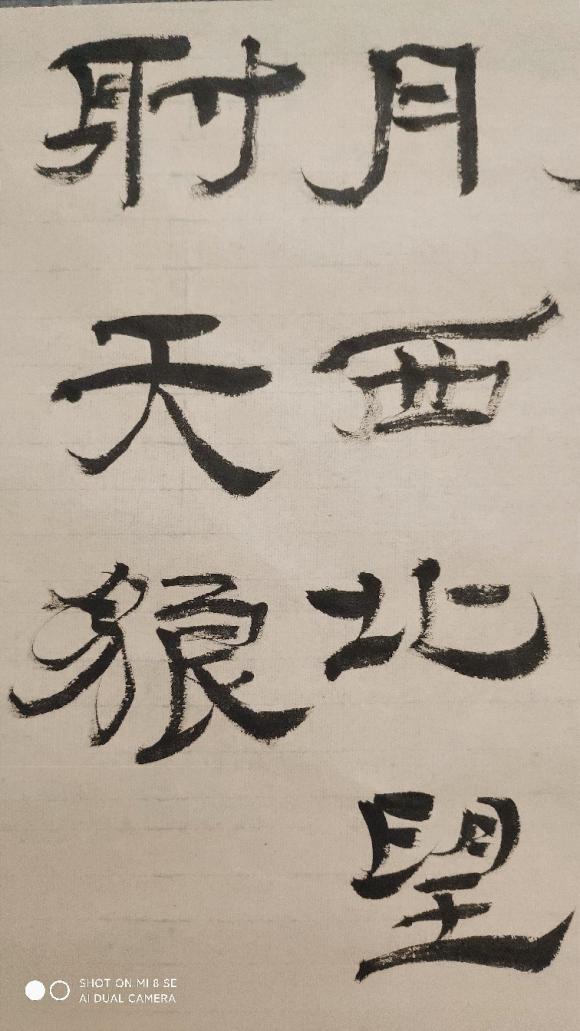 月西北望
射天狼
SHOT ON MI 8 SE
AI DUAL CAMERA